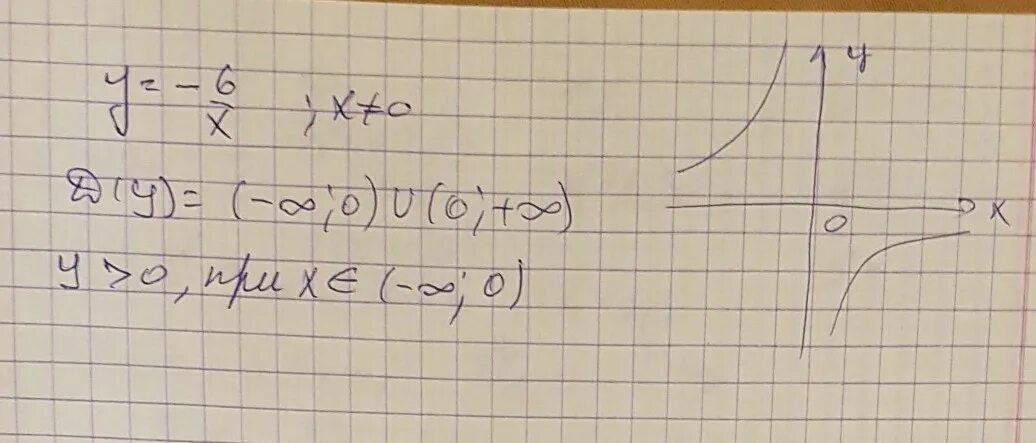 y = -6/x ; x ≠ 0
D(y) = (-∞; 0) ∪ (0; +∞)
y > 0, при x ∈ (-∞; 0)
y
0
x